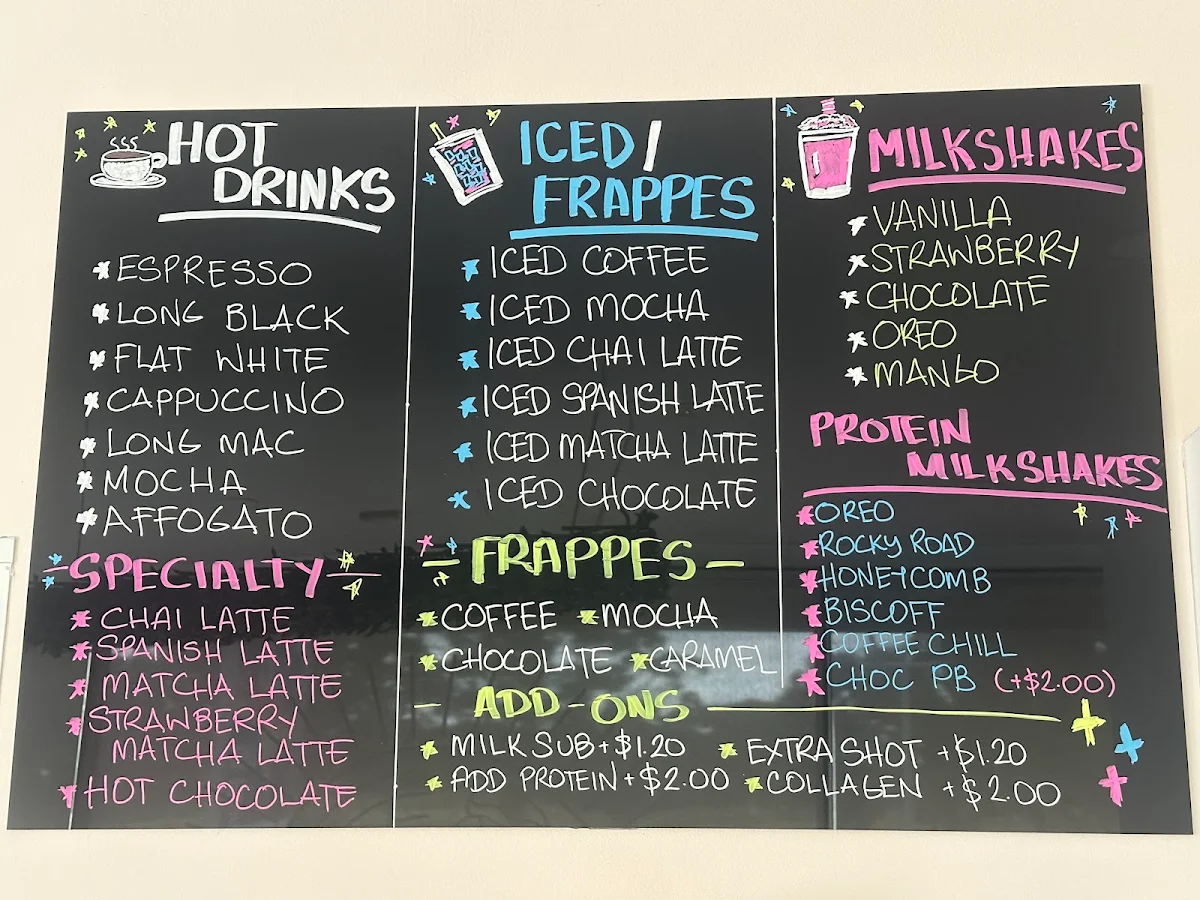 HOT
DRINKS
ESPRESSO
LONG BLACK
FLAT WHITE
CAPPUCCINO
LONG MAC
MOCHA
AFFOGATO
SPECIALTY
CHAI LATTE
SPANISH LATTE
MATCHA LATTE
STRAWBERRY
MATCHA LATTE
HOT CHOCOLATE
ICED/
FRAPPES
ICED COFFEE
ICED MOCHA
ICED CHAI LATTE
ICED SPANISH LATTE
ICED MATCHA LATTE
ICED CHOCOLATE
FRAPPES
COFFEE MOCHA
CHOCOLATE CARAMEL
MILKSHAKES
VANILLA
STRAWBERRY
CHOCOLATE
OREO
MANGO
PROTEIN
MILKSHAKES
OREO
ROCKY ROAD
HONEYCOMB
BISCOFF
COFFEE CHILL
CHOC PB (+$2.00)
ADD-ONS
MILK SUB +$1.20 EXTRA SHOT +$1.20
ADD PROTEIN +$2.00 COLLAGEN +$2.00